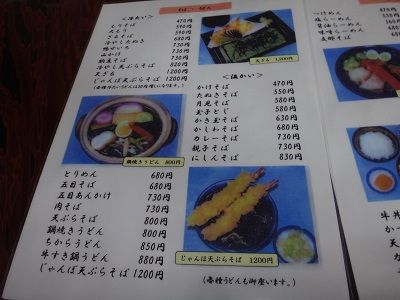 そば・うどん
<冷たい>
470円
もりそば
590円
冷やしたぬき
730円
鴨せいろ
730円
山かけ
730円
納豆そば
820円
冷やし天ぷらそば
880円
天ざる
1200円
じゃんぼ天ぷらそば
1200円
天ざる 1,200円
<温かい>
かけそば 470円
たぬきそば 550円
月見そば 550円
玉子とじ 580円
かき玉そば 630円
かしわそば 680円
カレーそば 730円
親子そば 730円
にしんそば 830円
鍋焼きうどん 800円
とりめん 680円
五目そば 680円
五目あんかけ 730円
肉そば 730円
天ぷらそば 800円
鍋焼きうどん 800円
ちからうどん 850円
牛すき鍋うどん 880円
じゃんぼ天ぷらそば 1200円
じゃんぼ天ぷらそば 1200円
(各種うどんも御座います。)
つけめん
塩らーめん
醤油らーめん
味噌らーめん
470円